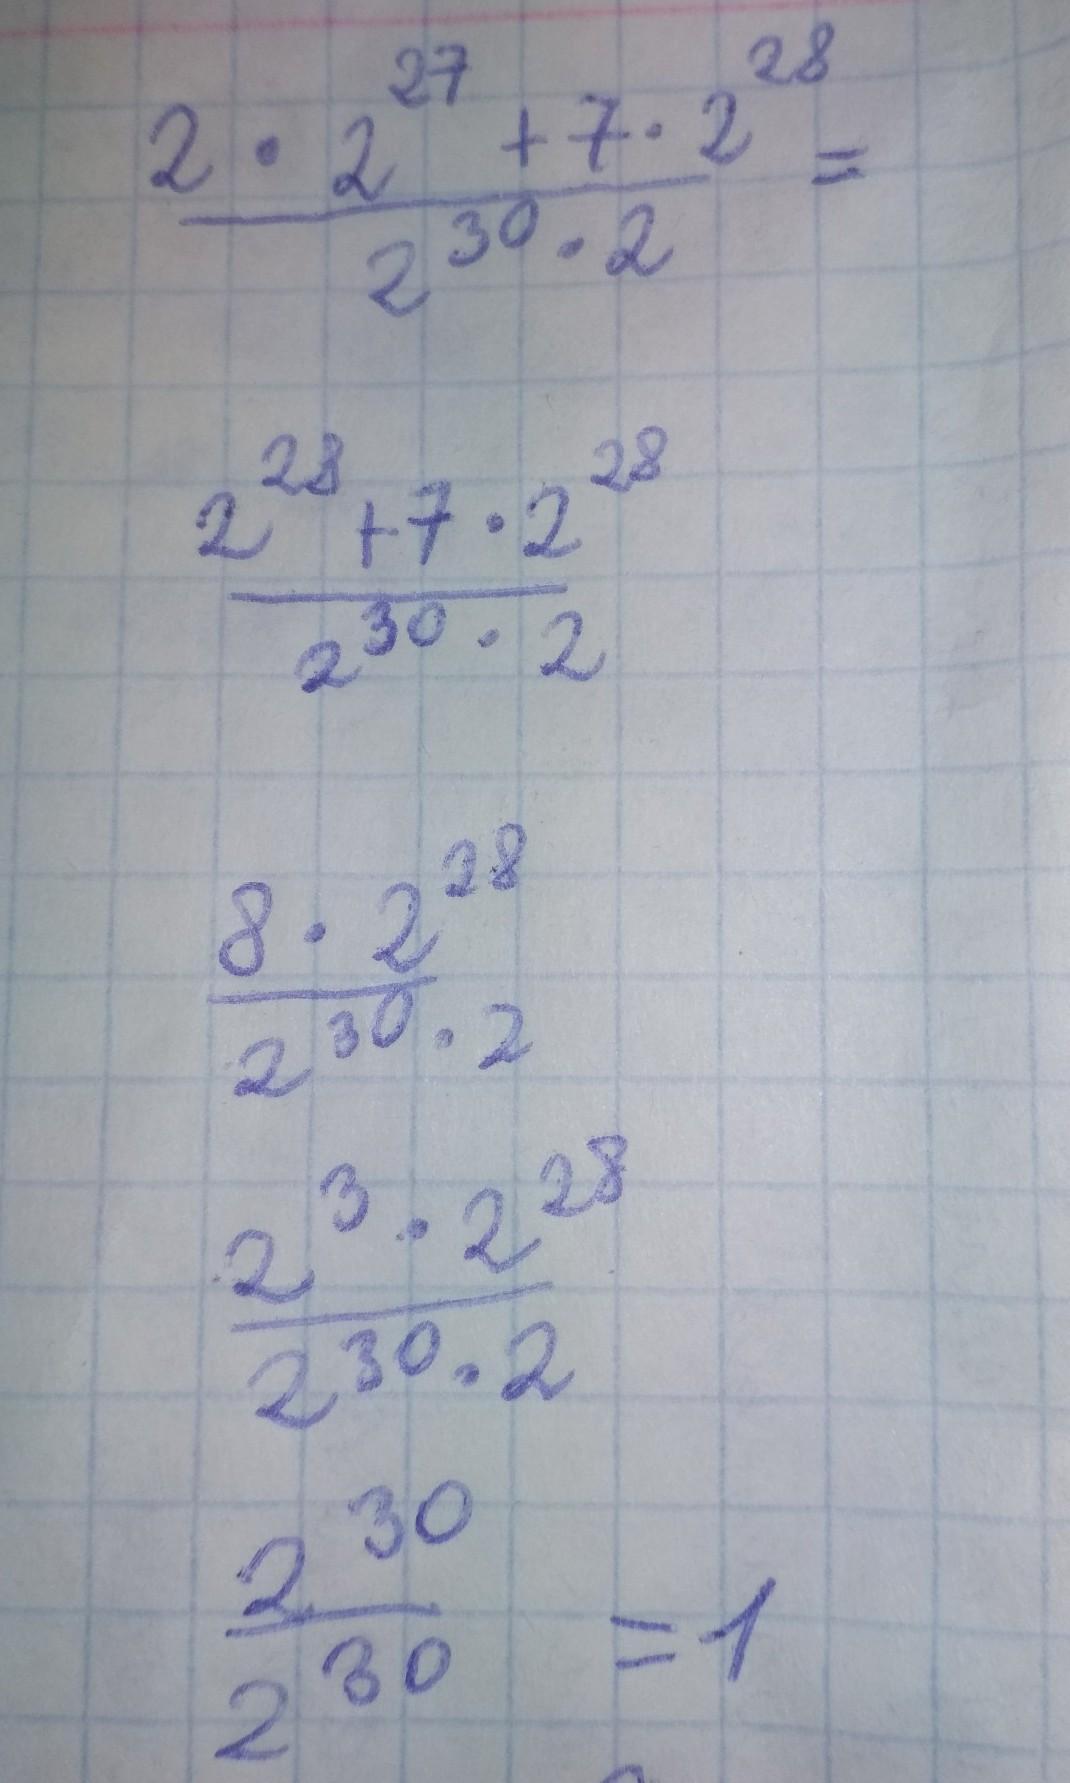 2 · 2^27 + 7 · 2^28 =
2^30 · 2
2^28 + 7 · 2^28
2^30 · 2
8 · 2^28
2^30 · 2
2^3 · 2^28
2^30 · 2
2^30
2^30 = 1